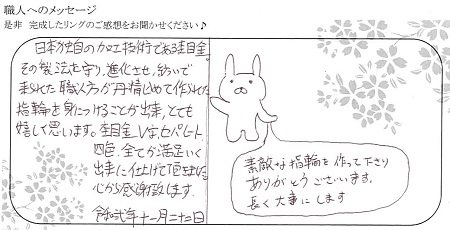 職人へのメッセージ
是非 完成したリングのご感想をお聞かせください♪
日本独自の加工技術である杢目金。
その製法を守り、進化させ、紡いで
来られた職人方が丹精込めて作られた
指輪を身につけることが出来、とても
嬉しく思います。杢目金、V字、セパレート、
四色、全てが満足いく
出来に仕上げて頂きまして
心から感謝致します。
令和弐年十一月二十二日
素敵な指輪を作って下さり
ありがとうございます。
長く大事にします